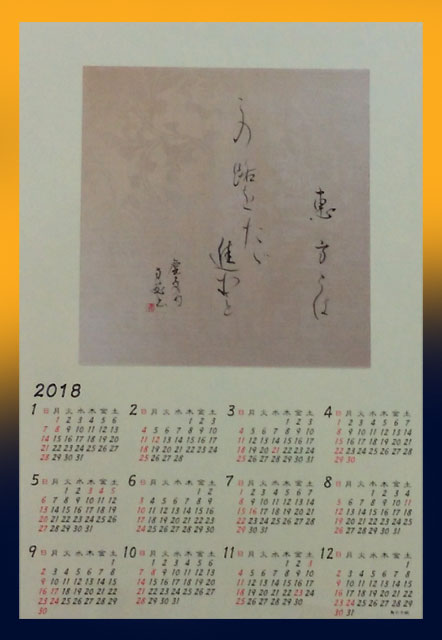 恵方とは
この路をたゞ
進むこと
2018
1 日 月 火 水 木 金 土
1 2 3 4 5 6
7 8 9 10 11 12 13
14 15 16 17 18 19 20
21 22 23 24 25 26 27
28 29 30 31
2 日 月 火 水 木 金 土
1 2 3
4 5 6 7 8 9 10
11 12 13 14 15 16 17
18 19 20 21 22 23 24
25 26 27 28
3 日 月 火 水 木 金 土
1 2 3
4 5 6 7 8 9 10
11 12 13 14 15 16 17
18 19 20 21 22 23 24
25 26 27 28 29 30 31
4 日 月 火 水 木 金 土
1 2 3 4 5 6 7
8 9 10 11 12 13 14
15 16 17 18 19 20 21
22 23 24 25 26 27 28
29 30
5 日 月 火 水 木 金 土
1 2 3 4 5
6 7 8 9 10 11 12
13 14 15 16 17 18 19
20 21 22 23 24 25 26
27 28 29 30 31
6 日 月 火 水 木 金 土
1 2
3 4 5 6 7 8 9
10 11 12 13 14 15 16
17 18 19 20 21 22 23
24 25 26 27 28 29 30
7 日 月 火 水 木 金 土
1 2 3 4 5 6 7
8 9 10 11 12 13 14
15 16 17 18 19 20 21
22 23 24 25 26 27 28
29 30 31
8 日 月 火 水 木 金 土
1 2 3 4
5 6 7 8 9 10 11
12 13 14 15 16 17 18
19 20 21 22 23 24 25
26 27 28 29 30 31
9 日 月 火 水 木 金 土
1
2 3 4 5 6 7 8
9 10 11 12 13 14 15
16 17 18 19 20 21 22
23 24 25 26 27 28 29
30
10 日 月 火 水 木 金 土
1 2 3 4 5 6
7 8 9 10 11 12 13
14 15 16 17 18 19 20
21 22 23 24 25 26 27
28 29 30 31
11 日 月 火 水 木 金 土
1 2 3
4 5 6 7 8 9 10
11 12 13 14 15 16 17
18 19 20 21 22 23 24
25 26 27 28 29 30
12 日 月 火 水 木 金 土
1
2 3 4 5 6 7 8
9 10 11 12 13 14 15
16 17 18 19 20 21 22
23 24 25 26 27 28 29
30 31